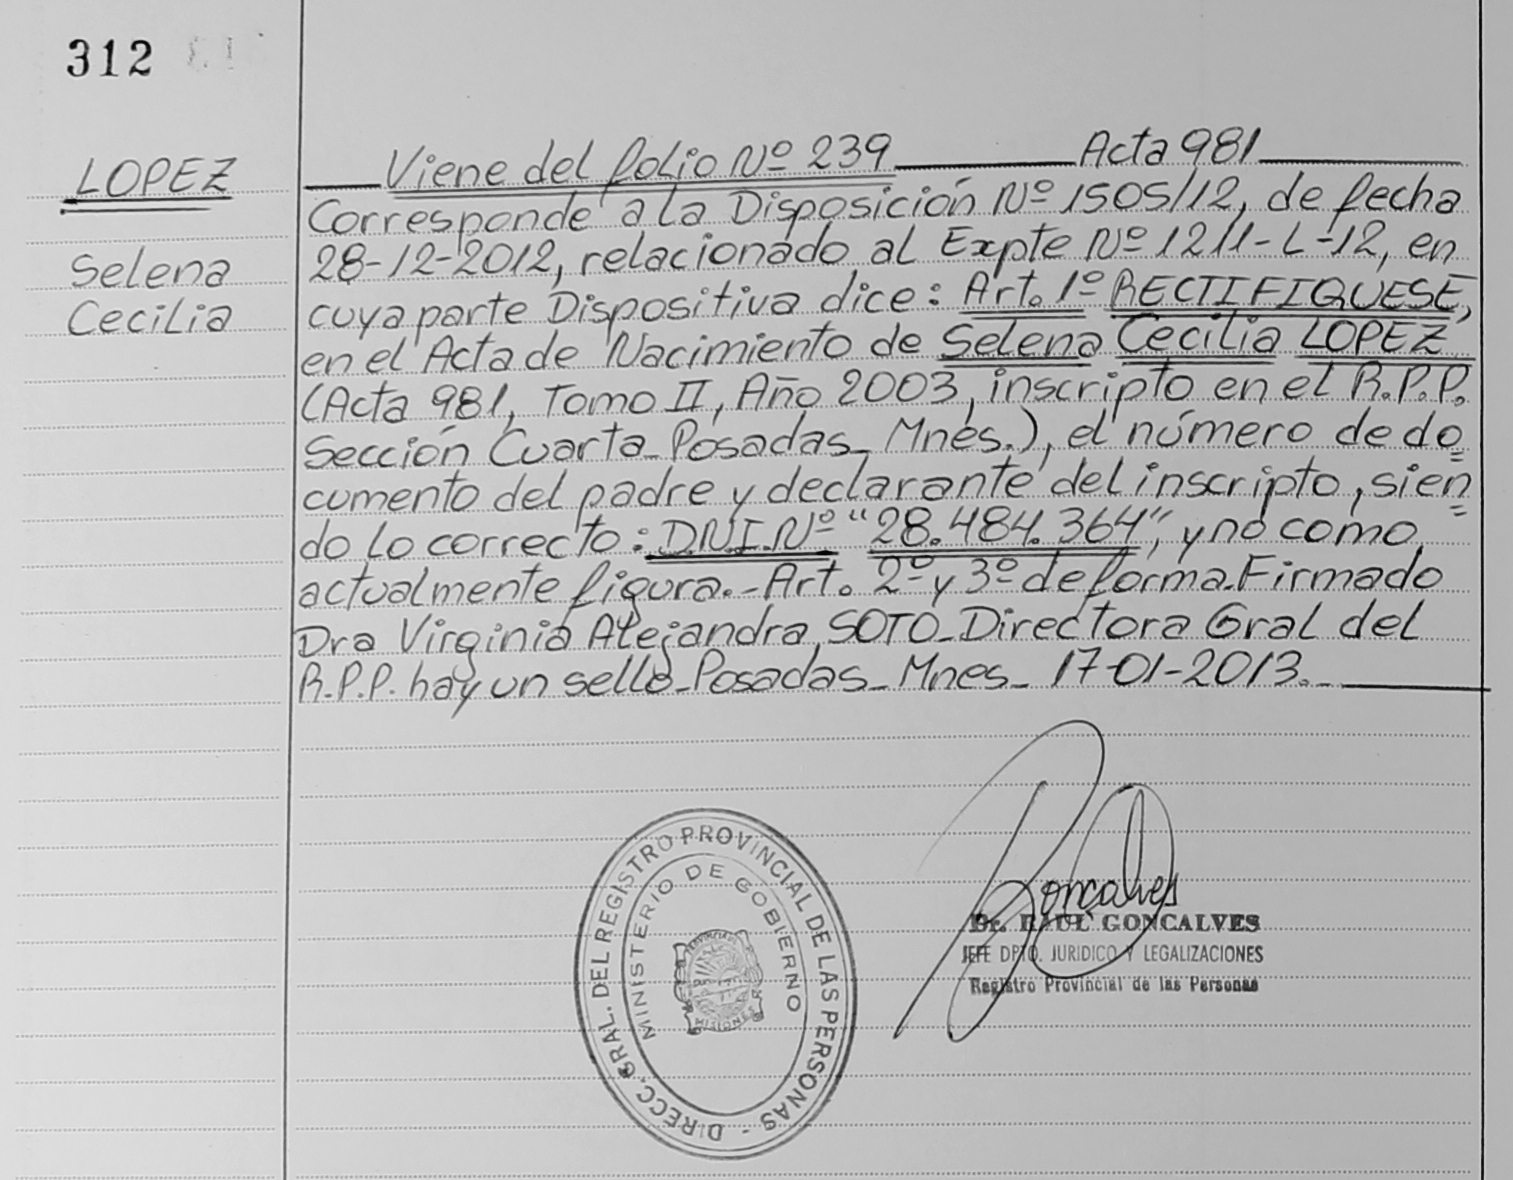 312
LOPEZ
Selena
Cecilia
Viene del folio Nº 239 Acta 981
Corresponde a la Disposición Nº 1505/12, de fecha
28-12-2012, relacionado al Expte Nº 1211-L-12, en
cuya parte Dispositiva dice: Art. 1º RECTIFIQUESE,
en el Acta de Nacimiento de Selena Cecilia LOPEZ
(Acta 981, Tomo II, Año 2003, inscripto en el R.P.P.
Sección Cuarta_Posadas_Mnes.), el número de do=
cumento del padre y declarante del inscripto, sien=
do lo correcto: D.N.I. Nº "28.484.364", y no como
actualmente figura.-Art. 2º y 3º de forma.Firmado
Dra Virginia Alejandra SOTO_Directora Gral del
R.P.P. hay un sello_Posadas_Mnes_ 17-01-2013._
DIRECC. GRAL. DEL REGISTRO PROVINCIAL DE LAS PERSONAS -
MINISTERIO DE GOBIERNO
PROVINCIA DE
MISIONES
Goncalves
Dr. RAUL GONCALVES
JEFE DPTO. JURIDICO Y LEGALIZACIONES
Registro Provincial de las Personas